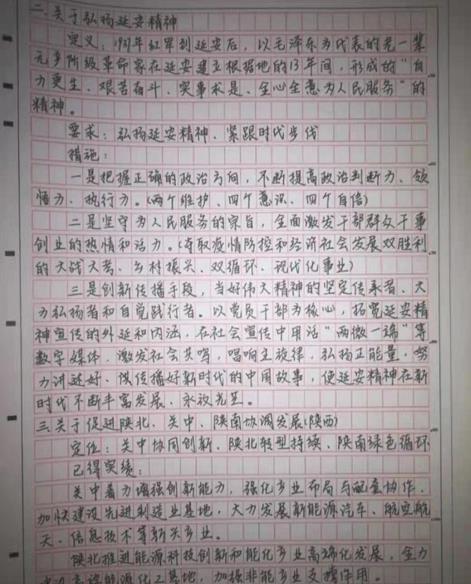 二.关于弘扬延安精神
定义:1935年红军到延安后,以毛泽东为代表的老一辈
无产阶级革命家在延安建立根据地的13年间,形成的“自
力更生、艰苦奋斗、实事求是、全心全意为人民服务”的
精神。
要求:弘扬延安精神、紧跟时代步伐
措施:
一是把握正确的政治方向,不断提高政治判断力、领
悟力、执行力。(两个维护、四个意识、四个自信)
二是坚守为人民服务的宗旨,全面激发干部群众干事
创业的热情和活力。(夺取疫情防控和经济社会发展双胜利
的大战大考、乡村振兴、双循环、现代化事业)
三是创新传播手段,当好伟大精神的坚定传承者、大
力弘扬者和自觉践行者。以党员干部为核心,拓宽延安精
神宣传的外延和内涵,在社会宣传中用活“两微一端”等
数字媒体,激发社会共鸣,唱响主旋律,弘扬正能量,努
力讲述好、传播好新时代的中国故事,使延安精神在新
时代不断丰富发展、永放光芒。
三.关于促进陕北、关中、陕南协调发展(陕西)
定位:关中协同创新、陕北转型持续、陕南绿色循环
已得实绩:
关中着力增强创新能力,强化产业布局与配套协作,
加快建设先进制造业基地,大力发展新能源汽车、航空航
天、信息技术等新兴产业。
陕北推进能源科技创新和能化产业高端化发展,全力
能源化工基地,加操非能产业支撑作用